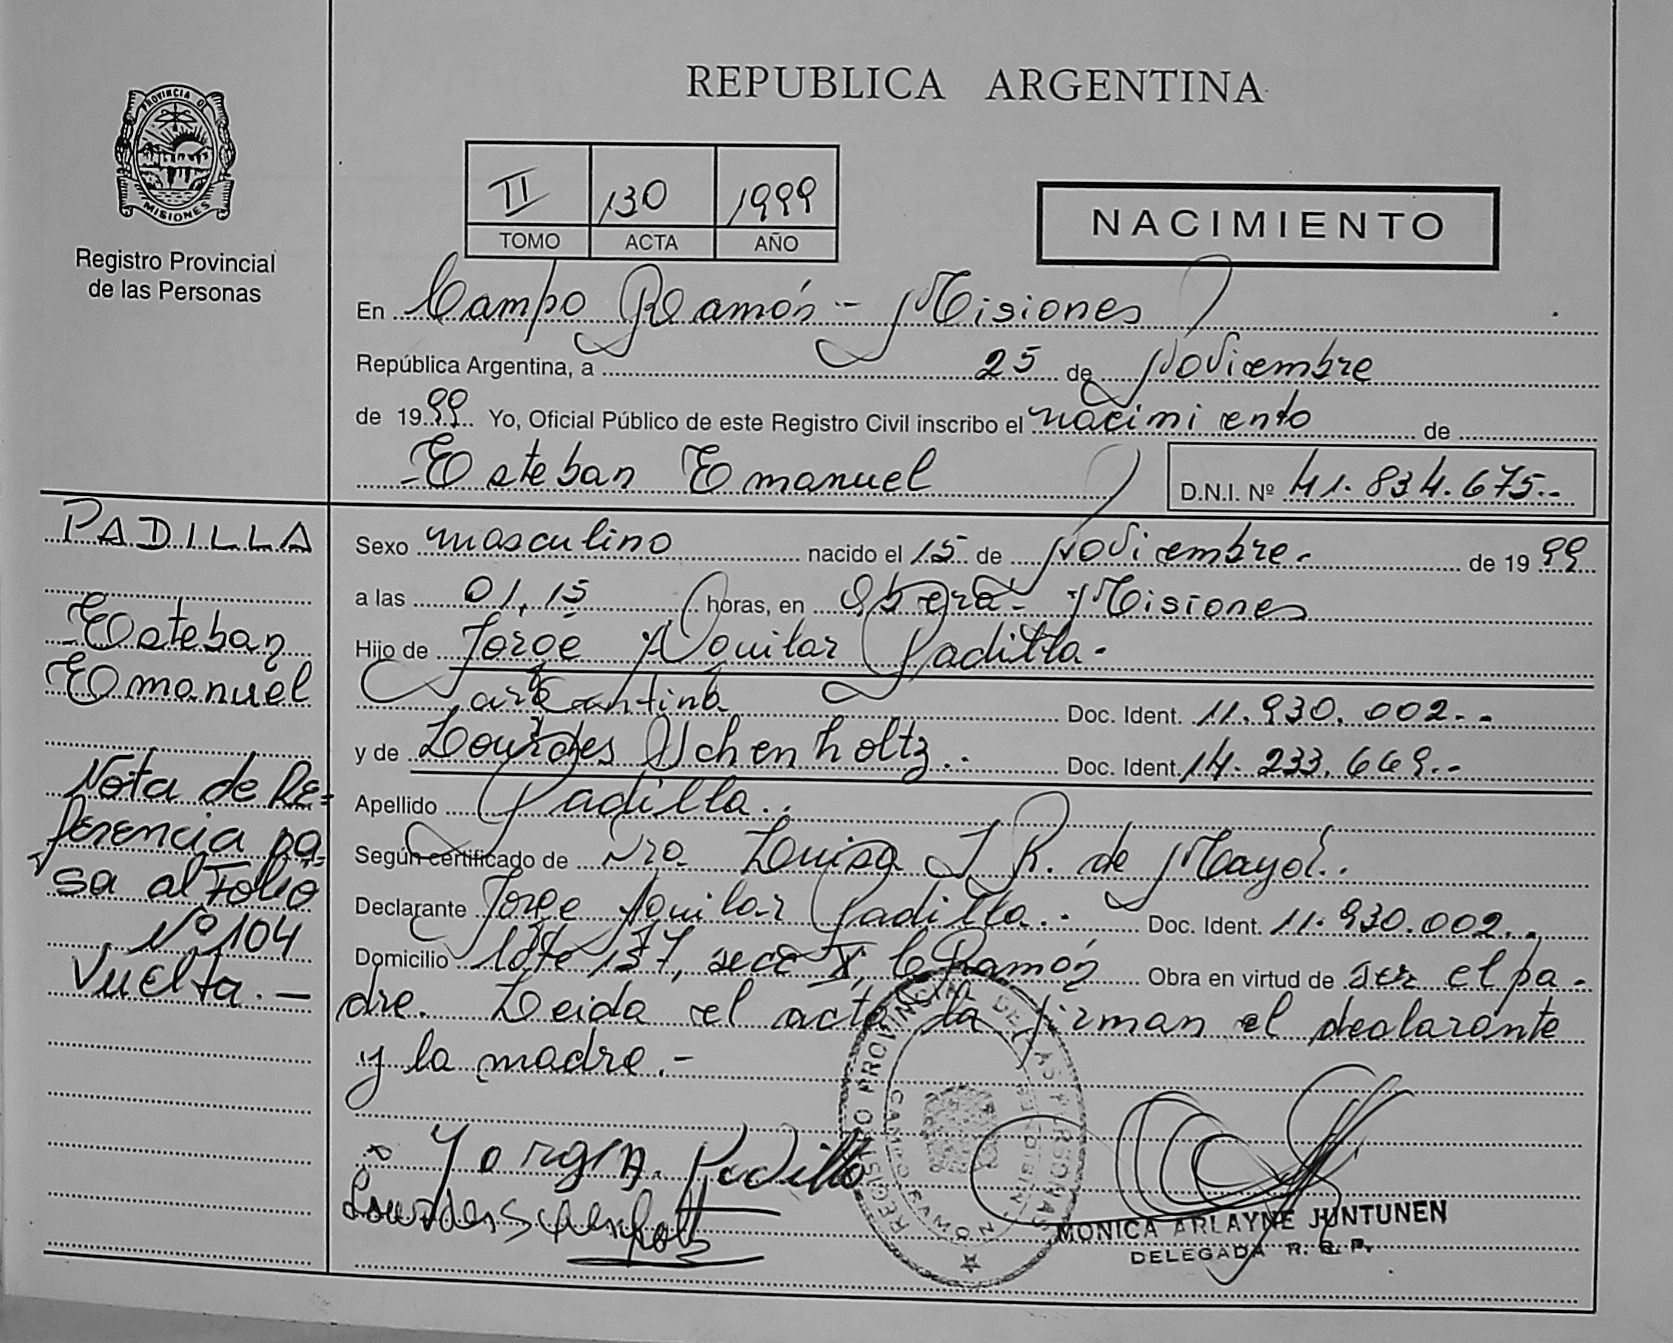 REPUBLICA ARGENTINA
PROVINCIA DE
MISIONES
Registro Provincial
de las Personas
II 130 1999
TOMO ACTA AÑO
NACIMIENTO
En Campo Ramón - Misiones
República Argentina, a 25 de Noviembre
de 1999 Yo, Oficial Público de este Registro Civil inscribo el nacimiento de
-Esteban Emanuel
D.N.I. Nº 41.834.675.-
PADILLA
Esteban
Emanuel
Nota de Re=
ferencia pa=
sa al Folio
Nº 104
Vuelta.-
Sexo masculino nacido el 15 de Noviembre.- de 1999
a las 01,15 horas, en Oberá- Misiones
Hijo de Jorge Aguilar Padilla.-
argentina Doc. Ident. 11.930.002.-
y de Lourdes Schenholtz.. Doc. Ident. 14.233.669.-
Apellido Padilla..
Según certificado de Dra Luisa J. R. de Mayol..
Declarante Jorge Aguilar Padilla.. Doc. Ident. 11.930.002..
Domicilio lote 137, secc X, C. Ramón Obra en virtud de ser el pa-
dre. Leida el acta la firman el declarante
y la madre.-
Jorge A. Padilla
Lourdes Schenholtz
REGISTRO PROVINCIAL DE LAS PERSONAS
CAMPO RAMON
MISIONES
MONICA ARLAYNE JUNTUNEN
DELEGADA R. P.